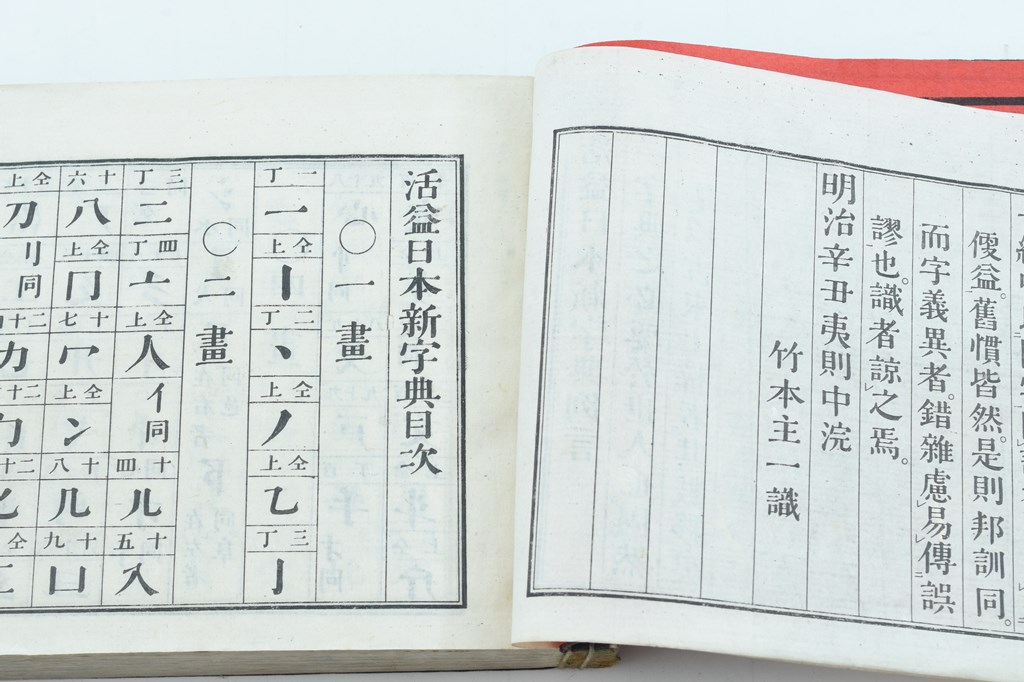 便益。舊慣皆然。是則邦訓同。
而字義異者。錯雜慮易傳誤
謬也。識者諒之焉。
明治辛丑夷則中浣
竹本主一識
活益日本新字典目次
〇一畫
一丁 一 仝上 丨 二丁 丶 仝上 丿 仝上 乙 三丁 亅
〇二畫
三丁 二 四丁 亠 仝上 人 亻同 十四 儿 十五 入
十六 八 仝上 冂 十七 冖 仝上 冫 十八 几 十九 凵
仝上 刀 刂同 力